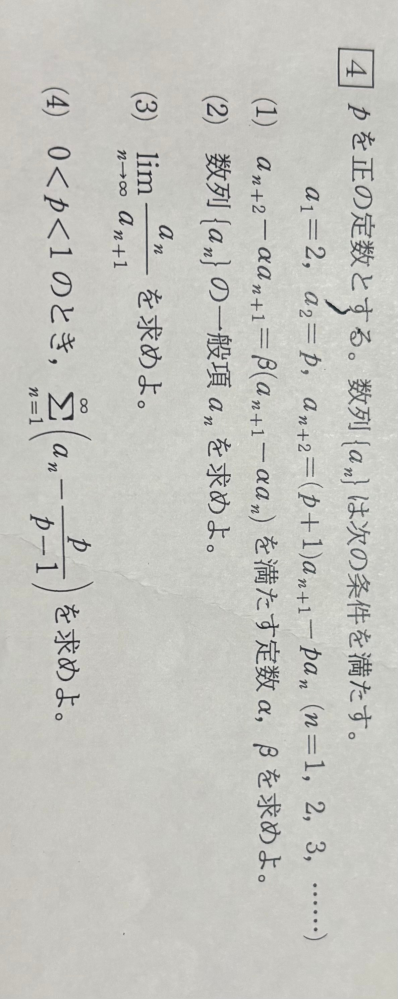 4 pを正の定数とする。数列{aₙ}は次の条件を満たす。
a₁=2, a₂=p, aₙ₊₂=(p+1)aₙ₊₁−paₙ (n=1, 2, 3, ……)
(1) aₙ₊₂−αaₙ₊₁=β(aₙ₊₁−αaₙ) を満たす定数α, βを求めよ。
(2) 数列{aₙ}の一般項aₙを求めよ。
(3) lim_{n→∞} aₙ/aₙ₊₁ を求めよ。
(4) 0<p<1のとき, ∑_{n=1}^{∞}(aₙ − p/(p−1)) を求めよ。